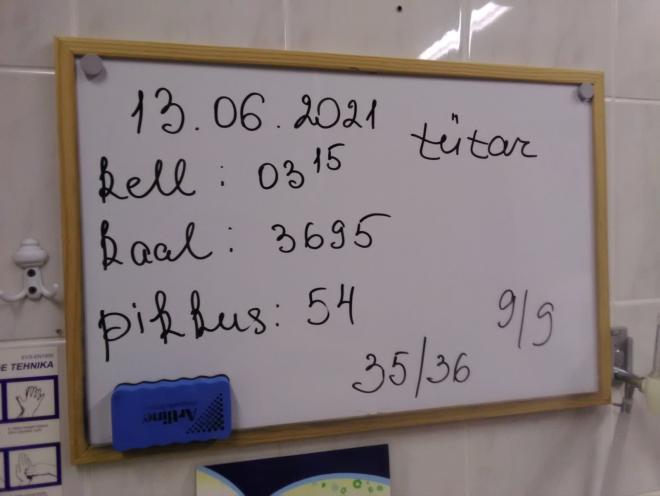 13.06.2021
tütar
kell: 03 15
kaal: 3695
pikkus: 54
9/9
35/36
Artline
EVS-EN1500
E TEHNIKA